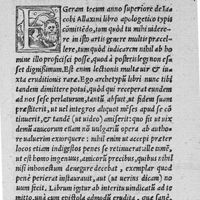 EGeram tecum anno superiore de Ia
cobi Allaxini libro apologetico typis
cōmittēdo, tum quòd tu mihi uidere
re in isto artis genere multùm præcel
lere, tum quòd indicarem nihil ab ho
mine illo proficisci posse, quod à posteris legi non es
set dignissimum. Est enim lectionis multæ uir & in
eruditionis raræ. Ego archetypū libri nunc tibi
tandem dimittere potui, quòd qui receperat eundem
ad nos ferre perlaturum, tantū abfuit ut fidem suam
præstiterit, ut uel integros aliquot mēses apud se cō
tinuerit, & tandē (ut uideo) suppresserit: eò ut uix
demū auxocurare etiam nō uulgari opera ab autho
re aduerterim exorauerim: nihil enim ut accepi præter
locos etiam indigestos penes se retinuerat ille uir,
ut est homo ingenuus, amicorū precibus, quibus
nisi inhonestum denegare decebat, exemplar quod
penè perierat instaurauit, aut (ut uerius dicam) no
uum fecit. Librum igitur ab interitu uindicatū ad te
mitto, unà cum epistola admodū erudita, que sanè